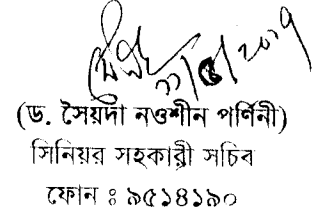 ২২/৫/২০১৭
(ড. সৈয়দা নওশীন পর্ণিনী)
সিনিয়র সহকারী সচিব
ফোন ঃ ৯৫১৪১৯০